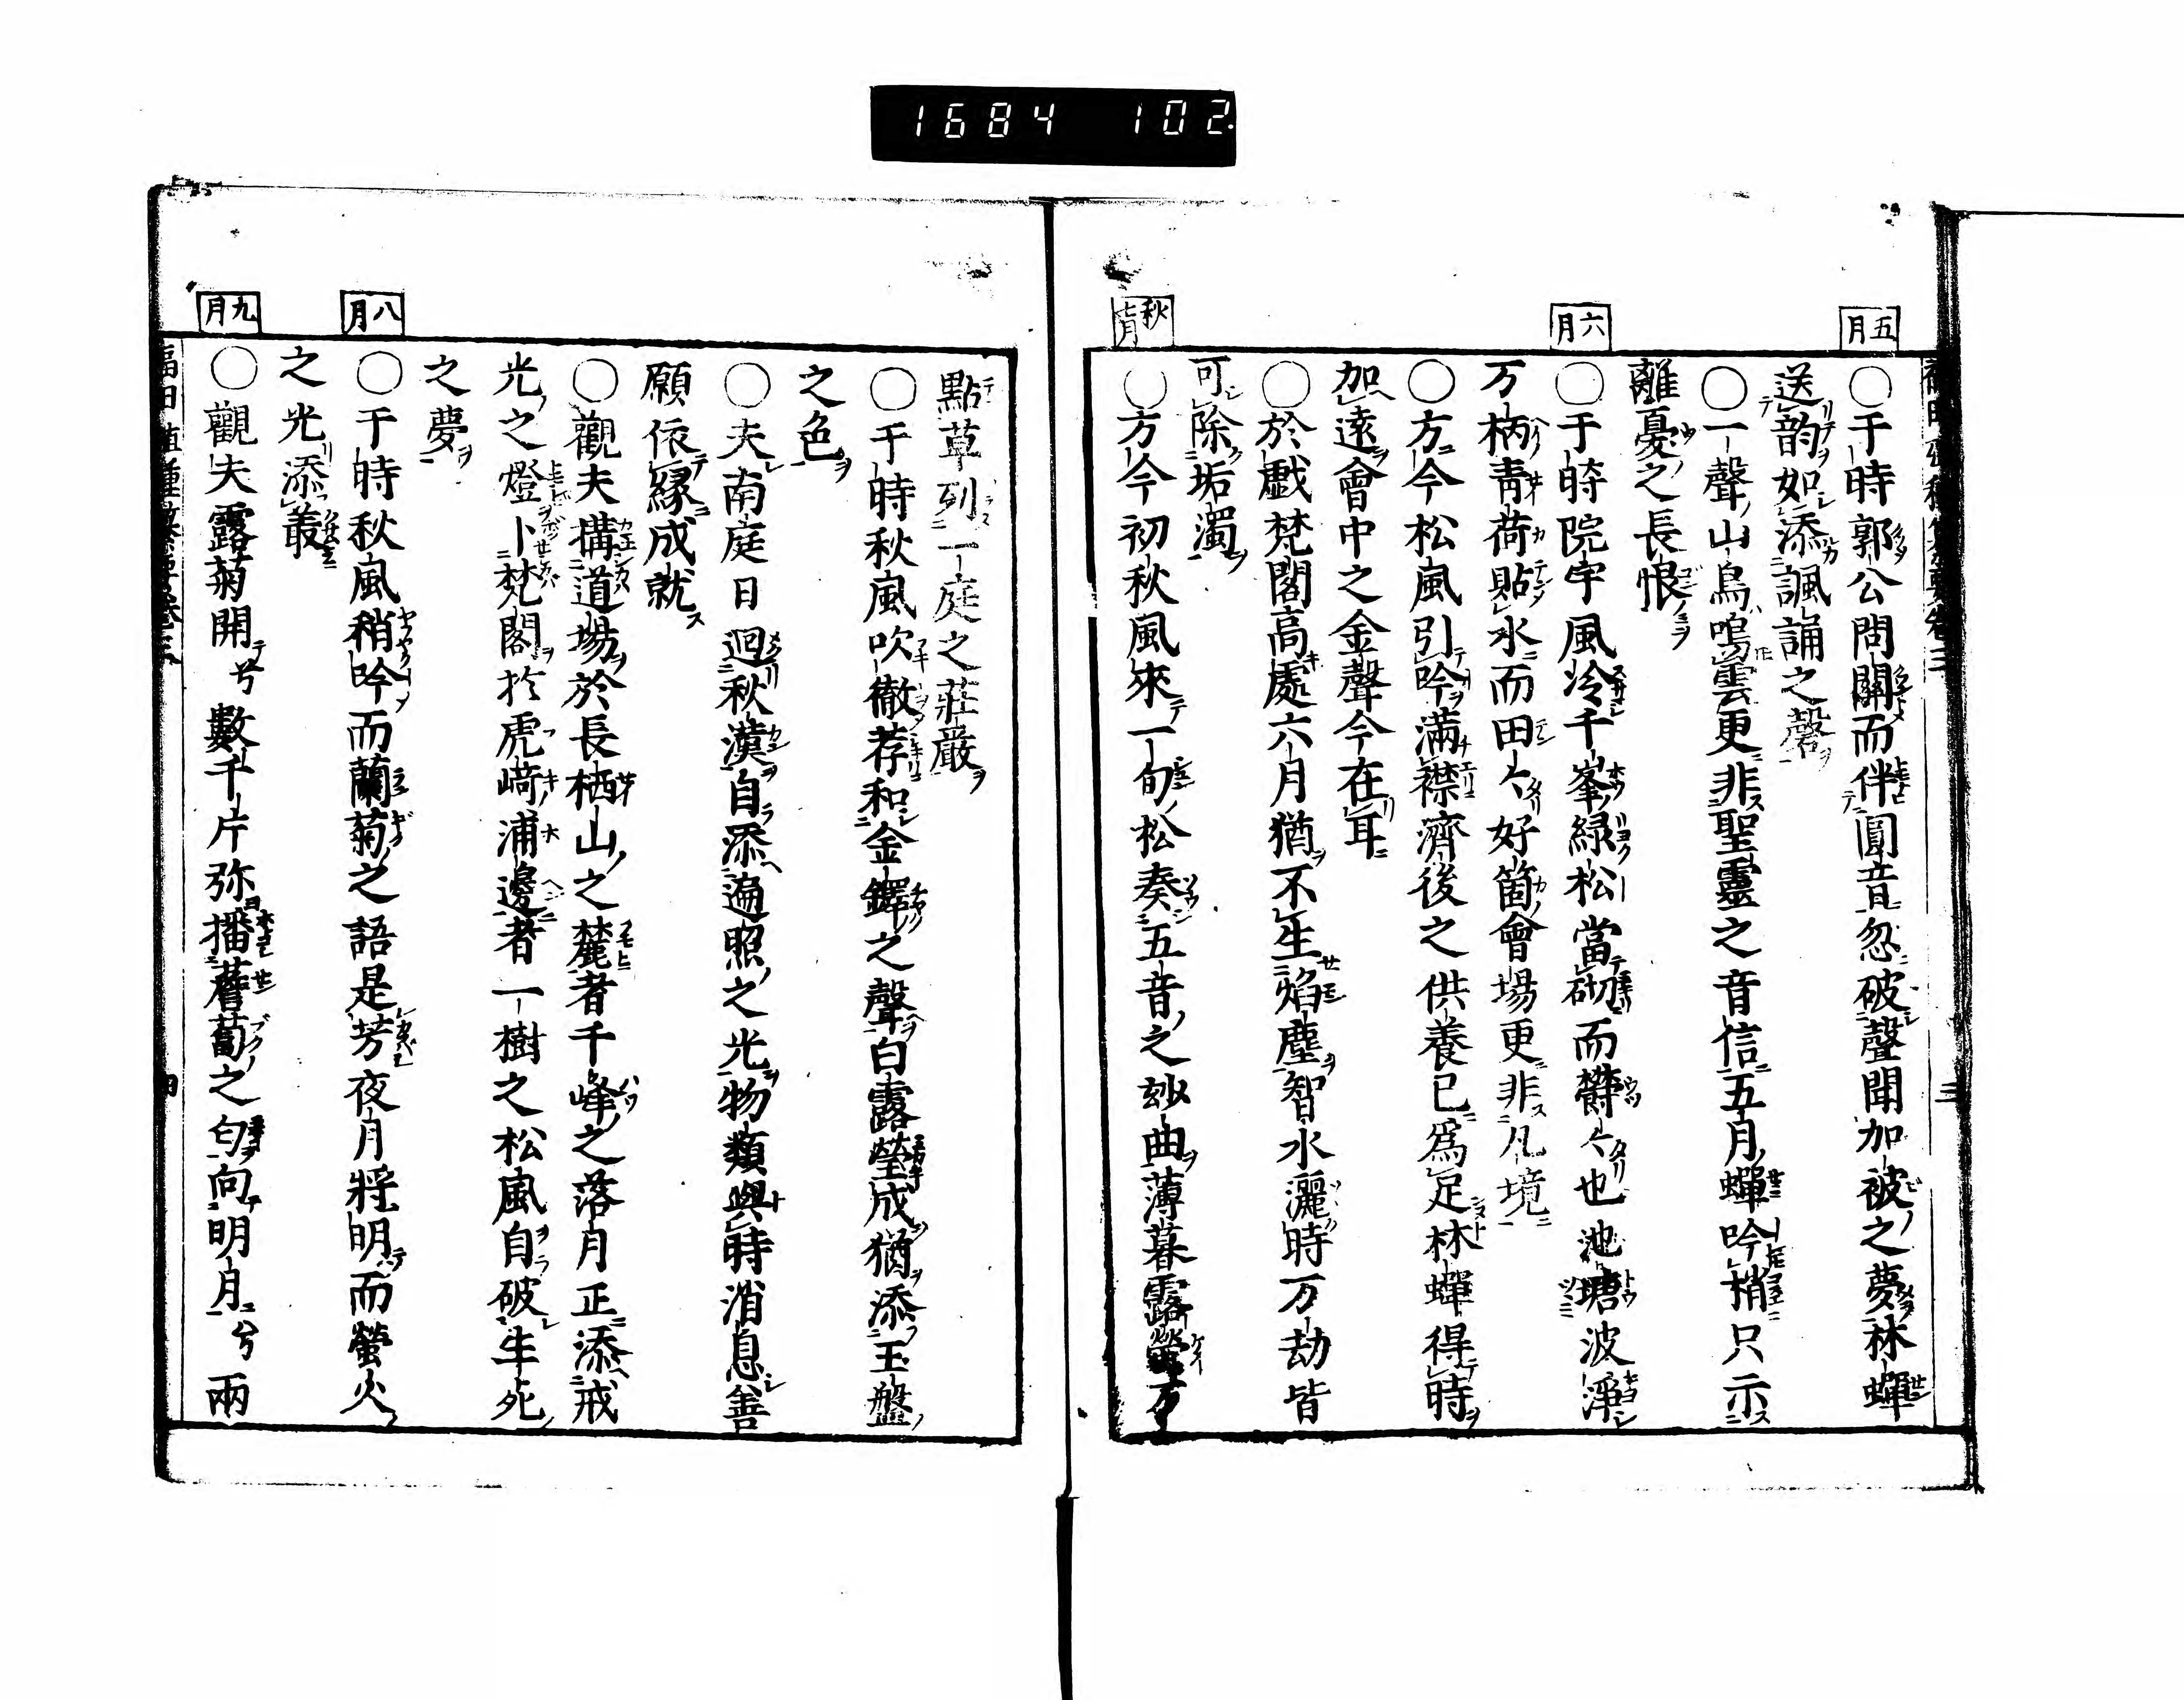 1684 102
五月
○于時郭公問關而伴圓音忽破聲聞加被之夢林蟬
送韵如添諷誦之磬
○一聲山鳥鳴雲更非聖靈之音信五月蟬吟梢只示
離憂之長恨
六月
○于時院宇風冷千峯綠松當砌而欝々也池塘波淨
万柄青荷貼水而田々好箇會場更非凡境
○方今松風引吟滿襟濟後之供養已爲足林蟬得時
加遠會中之金聲今在耳
○於戲梵閣高處六月猶不生焰塵智水灑時万劫皆
可除垢濁
秋七月
○方今初秋風來一旬松奏五音之妙曲薄暮露瑩万
點草列一庭之莊嚴
○于時秋風吹徹荐和金鐸之聲白露瑩成猶添玉盤
之色
○夫南庭日廻秋漢自添遍照之光物類與時消息善
願依縁成就
○觀夫搆道場於長栖山之麓者千峰之落月正添戒
光之燈卜梵閣於虎﨑浦邊者一樹之松風自破生死
之夢
八月
○于時秋風稍吟而蘭菊之語是芳夜月將明而螢火
之光添叢
九月
○觀夫露菊開兮數千片弥播薝蔔之匂向明月兮兩